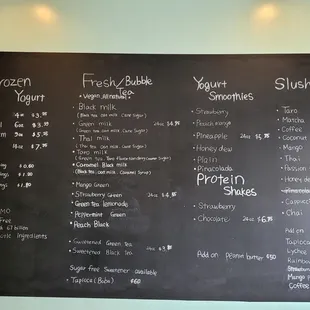 rozen
Yogurt
4oz $3.
6oz $3.95
9oz $5.75
16oz $7.75
$0.60
$1.00
$1.80
67 billion
Ingredients
Fresh/Bubble
Tea
• Vegan, All natural •
• Black milk
(Black tea, oat milk, cane sugar)
• Green milk
24oz $5.75
(Green tea, oat milk, cane sugar)
• Thai milk
(Thai tea, oat milk, cane sugar)
• Taro milk
• Caramel Black milk
(Black tea, oat milk, Caramel Syrup)
• Mango Green
• Strawberry Green 24oz $4.95
• Green tea lemonade
• Peppermint Green
• Peach Black
• Sweetened Green tea
• Sweetened Black tea 24oz $3.95
Sugar free Sweetener available
• Tapioca (Boba) $60
Yogurt
Smoothies
• Strawberry
• Peach mango
• Pineapple 24oz $6.
• Honey dew
• Plain
• Pinacolada
Protein
Shakes
• Strawberry
• Chocolate 24oz $6.75
Add on peanut butter $50
Slush
• Taro
• Matcha
• Coffee
• Coconut
• Mango
• Thai
• Passion
• Honey de
• Pinacolada
• Cappucci
• Chai
Add on
Tapioca
Lychee
Rainbo
Strawb
Mango
Coffee